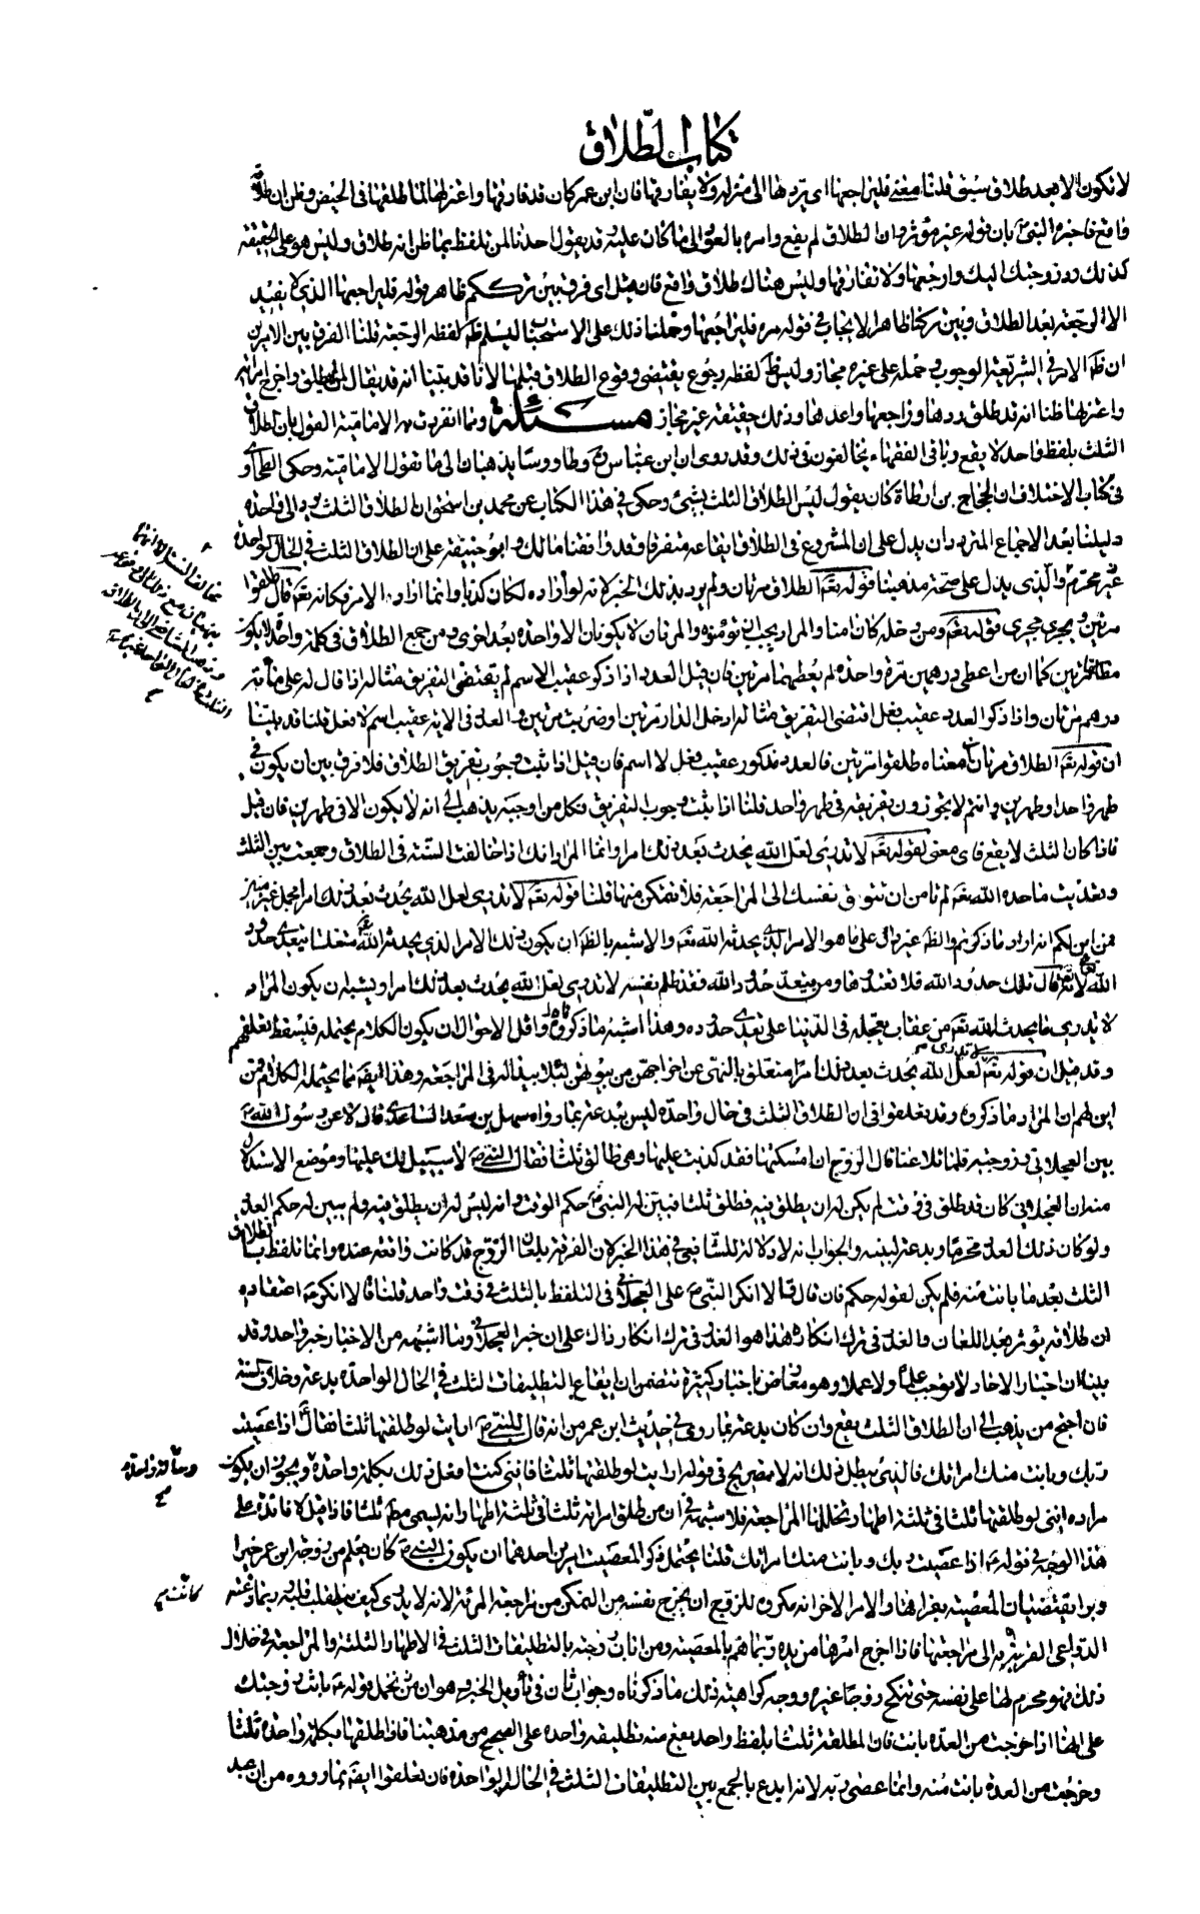 كتاب الطلاق
لا تكون الا بعد طلاق سبق قلنا معنى فليراجعها اى يردها الى منزله ولا يفارقها فان ابن عمر كان قد فارقها واعتزلها لما طلقها فى الحيض وظن ان طلاقه
واقع فاخبره النبى بان قوله غير مؤثر وان الطلاق لم يقع وامره بالعود الى ما كان عليه وقد يقول احدنا لمن تلفظ بما ظن انه طلاق وليس هو على الحقيقة
كذلك رد زوجتك اليك وارجعها ولا تفارقها وليس هناك طلاق واقع فان قيل اى فرق بين ترككم ظاهر قوله فليراجعها الذى لا يفيد
الا الرجعة بعد الطلاق وبين تركنا ظاهر الايجاب فى قوله مره فليراجعها وحملنا ذلك على الاستحباب ليسلم لفظة الرجعة قلنا الفرق بين الامرين
ان ظ الامر فى الشريعة الوجوب وحمله على غيره مجاز وليس ظ لفظه رجوع يقتضى وقوع الطلاق قبلها لانا قد بينا انه قد يقال لمن واخرج امراته
واعتزلها ظنا انه قد طلق ردها وراجعها واعدها وذلك حقيقة غير مجاز مسئلة ومما انفردت به الامامية القول بان الطلاق
الثلث بلفظ واحد لا يقع وباقى الفقهاء يخالفون فى ذلك وقد روى ان ابن عباس وطاووسا يذهبان الى ما تقول الامامية وحكى الطحاوى
فى كتاب الاختلاف ان الحجاج بن ارطاة كان يقول ليس الطلاق الثلث بشىء وحكى فى هذا الكتاب عن محمد بن اسحق ان الطلاق الثلث يرد الى واحدة
دليلنا بعد الاجماع المتردد ان يدل على ان المشروع فى الطلاق ايقاعه متفرقا وقد وافقنا مالك وابو حنيفة على ان الطلاق الثلث فى الحال الواحدة
محرم والذى يدل على صحة مذهبنا قوله تعم الطلاق مرتان ولم يرد بذلك الخبر لانه لو اراده لكان كذبا وانما اراد الامر فكانه تعم قال طلقوا
مرتين ويجرى مجرى قوله تعم ومن دخله كان امنا والمراد يجب ان تؤمنوه والمرتان لا يكونان الا واحدة بعد اخرى ومن جمع الطلاق فى كلمة واحدة لا يكون
مطلقا مرتين كما ان من اعطى درهمين مرة واحدة لم يعطهما مرتين فان قيل العدد اذا ذكر عقيب الاسم لم يقتض التفريق مثاله اذا قال له على مائة
درهم مرتان واذا ذكر العدد عقيب فعل اقتضى التفريق مثاله ادخل الدار مرتين او ضربت مرتين والعدد فى الاية عقيب اسم لا فعل قلنا قد بينا
ان قوله تعم الطلاق مرتان معناه طلقوا مرتين فالعدد مذكور عقيب فعل لا اسم فان قيل اذا ثبت وجوب تفريق الطلاق فلا فرق بين ان يكون فى
طهر واحد او طهرين وانتم لا تجوزون تفريقه فى طهر واحد قلنا اذا ثبت وجوب التفريق فكل من اوجبه يذهب الى انه لا يكون الا فى طهرين فان قيل
فاذا كان الثلث لا يقع فاى معنى لقوله تعم لا تدرى لعل الله يحدث بعد ذلك امرا وانما المراد انك اذا خالفت السنة فى الطلاق وجمعت بين الثلث
وتعديت ما حده الله تعم لم تامن ان تتوق نفسك الى المراجعة فلا تتمكن منها قلنا قوله تعم لا تدرى لعل الله يحدث بعد ذلك امرا مجمل غير مبين
فمن اين لكم انه اراد ما ذكرتم والظ غير دال على ما هو الامر الذى يحدثه الله تعم والاشبه بالظ ان يكون ذلك الامر الذى يحدثه الله متعلقا بتعدى حدود
الله لانه قال تلك حدود الله فلا تعتدوها ومن يتعد حدود الله فقد ظلم نفسه لا تدرى لعل الله يحدث بعد ذلك امرا ويشبه ان يكون المراد
لا تدرى ما يحدث الله تعم من عقاب يعجله فى الدنيا على تعدى حدوده وهذا اشبه مما ذكروه واقل الاحوال ان يكون الكلام يحتمله فيسقط تعلقهم
وقد قيل ان قوله تعم لا تدرى لعل الله يحدث بعد ذلك امرا متعلق بالنهى عن اخراجهن من بيوتهن لئلا يبدو له فى المراجعة وهذا ايضا مما يحتمله الكلام فمن
اين لهم ان المراد ما ذكروه وقد تعلقوا فى ان الطلاق الثلث فى حال واحدة ليس ببدعة بما رواه سهل بن سعد الساعدى قال لاعن رسول الله ص
بين العجلانى وزوجته فلما تلاعنا قال الزوج ان امسكتها فقد كذبت عليها وهى طالق ثلثا فقال النبى ص لا سبيل لك عليها وموضع الاستدلال
منه ان العجلانى كان قد طلق فى وقت لم يكن له ان يطلق فيه فطلق ثلثا فبين له النبى ص حكم الوقت وانه ليس له ان يطلق فيه ولم يبين له حكم العدد
ولو كان ذلك العدد محرما وبدعة لبينه والجواب انه لا دلالة للشافعى فى هذا الخبر لان الفرقة بلعان الزوج قد كانت واقعة عنده وانما تلفظ بالطلاق
الثلث بعد ما بانت منه فلم يكن لقوله حكم فان قال فالا انكر النبى ص على العجلانى فى التلفظ بالثلث فى وقت واحد قلنا فالا انكر عليه اعتقاده
ان طلاقه يؤثر بعد اللعان والعذر فى ترك انكاره هذا هو العذر فى ترك انكار ذاك على ان خبر العجلانى وما اشبهه من الاخبار خبر واحد وقد
بينا ان اخبار الاحاد لا توجب علما ولا عملا وهو معارض باخبار كثيرة تتضمن ان ايقاع التطليقات الثلث فى الحال الواحدة بدعة وخلاف السنة
فان احتج من يذهب الى ان الطلاق الثلث يقع وان كان بدعة بما روى فى حديث ابن عمر من انه قال للنبى ص ارايت لو طلقتها ثلثا فقال اذا عصيت
ربك وبانت منك امراتك فالذى يبطل ذلك انه لا تصريح فى قوله ارايت لو طلقتها ثلثا فانى كنت افعل ذلك بكلمة واحدة ويجوز ان يكون
مراده اننى لو طلقتها ثلثا فى ثلثة اطهار تخللها المراجعة فلا شبهة فى ان من طلق امراته ثلثا فى ثلثة اطهار انه ليسمى مطلقا ثلثا فاذا قيل لا فائدة على
هذا الوجه فى قوله ع اذا عصيت ربك وبانت منك امراتك قلنا يحتمل ذكر المعصية امرين احدهما ان يكون النبى ص كان يعلم من زوجة ابن عمر خيرا
وبرا يقتضيان المعصية بفراقها والامر الاخر انه مكروه للزوج ان يخرج نفسه من التمكن من مراجعة المراة لانه لا يدرى كيف ينقلب قلبه وربما دعته
الدواعى القوية الى مراجعتها فاذا اخرج امرها من يده ربما هم بالمعصية ومن ابان زوجته بالتطليقات الثلث فى الاطهار الثلثة والمراجعة فى خلال
ذلك فهو محرم لها على نفسه حتى تنكح زوجا غيره ووجه كراهية ذلك ما ذكرناه وجواب ثان فى تأويل الخبر وهو ان نحمل قوله ع بانت زوجتك
على انها اذا خرجت من العدة بانت فان المطلقة ثلثا بلفظ واحد يقع منه تطليقة واحدة على الصحيح من مذهبنا فاذا طلقها بكلمة واحدة ثلثا
وخرجت من العدة بانت منه وانما عصى ربه لانه ابدع بالجمع بين التطليقات الثلث فى الحالة الواحدة فان تعلقوا ايضا بما رووه من ان عبد